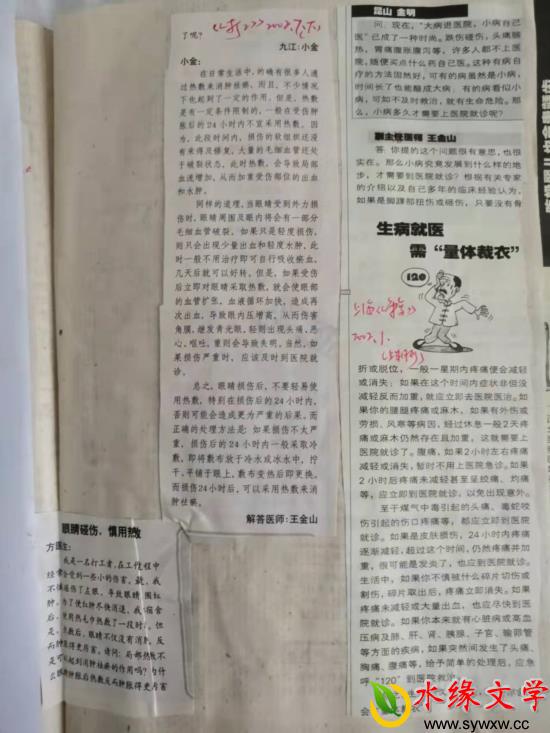 眼睛碰伤，慎用热敷
方医生：
了呢？
九江：小金
小金：
在日常生活中，的确有很多人通
过热敷来消肿祛瘀，而且，不少情况
下也起到了一定的作用。但是，热敷
是有一定条件限制的，一般在受伤肿
胀后的24小时内不宜采用热敷。因
为，此段时间内，损伤的软组织还没
有来得及修复，大量的毛细血管还处
于破裂状态，此时热敷，会导致局部
血流增加，从而加重受伤部位的出血
和水肿。
同样的道理，当眼睛受到外力损
伤时，眼睛周围及眼内将会有一部分
毛细血管破裂。如果只是轻度损伤，
则只会出现少量出血和轻度水肿，此
时一般不用治疗即可自行吸收瘀血，
几天后就可以好转。但是，如果受伤
后立即对眼睛采取热敷，就会使眼部
的血管扩张，血液循环加快，造成再
次出血，导致眼内压增高，从而伤害
角膜，继发青光眼，轻则出现头痛、恶
心、呕吐，重则会导致失明。当然，如
果损伤严重时，应该及时到医院就
诊。
总之，眼睛损伤后，不要轻易使
用热敷，特别在损伤后的24小时内，
否则可能会造成更为严重的后果。而
正确的处理方法是：如果损伤不太严
重，损伤后的24小时内一般采取冷
敷，即将敷布放于冷水或冰水中，拧
干，平铺于眼上，敷布变热后即更换。
而损伤24小时后，可以采用热敷来消
肿祛瘀。
解答医师：王金山
昆山 金明
问：现在，“大病进医院，小病自己
医”已成了一种时尚。跌伤碰伤，头痛脑
热，胃痛腹胀腹泻等，许多人都不上医
院，随便买点什么药自己医。这种有病自
疗的方法固然好，可有的病虽然是小病，
时间长了也能酿成大病，有的病看似小
病，可如不及时救治，就有生命危险。那
么，小病多久才需要上医院就诊呢？
副主任医师 王金山
答：你提的这个问题很有意思，也很
实在。那么小病究竟发展到什么样的地
步，才需要到医院就诊？根据有关专家
的介绍以及自己多年的临床经验认为，
如果是脚踝部扭伤或砸伤，只要没有骨
生病就医
需“量体裁衣”
120
2002.1.
折或脱位，一般一星期内疼痛便会减轻
或消失；如果在这个时间内症状非但没
减轻反而加重，就应立即去医院医治。如
果你的腰腿疼痛或麻木，如果有外伤或
劳损、风寒等病因，经过休息一般2天疼
痛或麻木仍然存在且加重，这就需要上
医院就诊了。腹痛，如果2小时左右疼痛
减轻或消失，暂时不用上医院急诊。如果
2小时后疼痛未减轻甚至呈绞痛、灼痛
等，应立即到医院就诊，以免出现意外。
至于煤气中毒引起的头痛、毒蛇咬
伤引起的伤口疼痛等，都应立即到医院
就诊。如果是皮肤损伤，24小时内疼痛
逐渐减轻，超过这个时间，仍然疼痛并加
重，很可能是发炎了，也应到医院就诊。
生活中，如果你不慎被什么碎片切伤或
割伤，碎片取出后，疼痛立即消失。如果
疼痛未减轻或大量出血，也应尽快到医
院就诊。如果你本来就有心脏病或高血
压病及肺、肝、肾、胰腺、子宫、输卵管
等方面的疾病，如果突然间发生了头痛、
胸痛、腹痛等，给予简单的处理后，应急
呼“120”到医院救治。
水缘文学
www.sywxw.cc